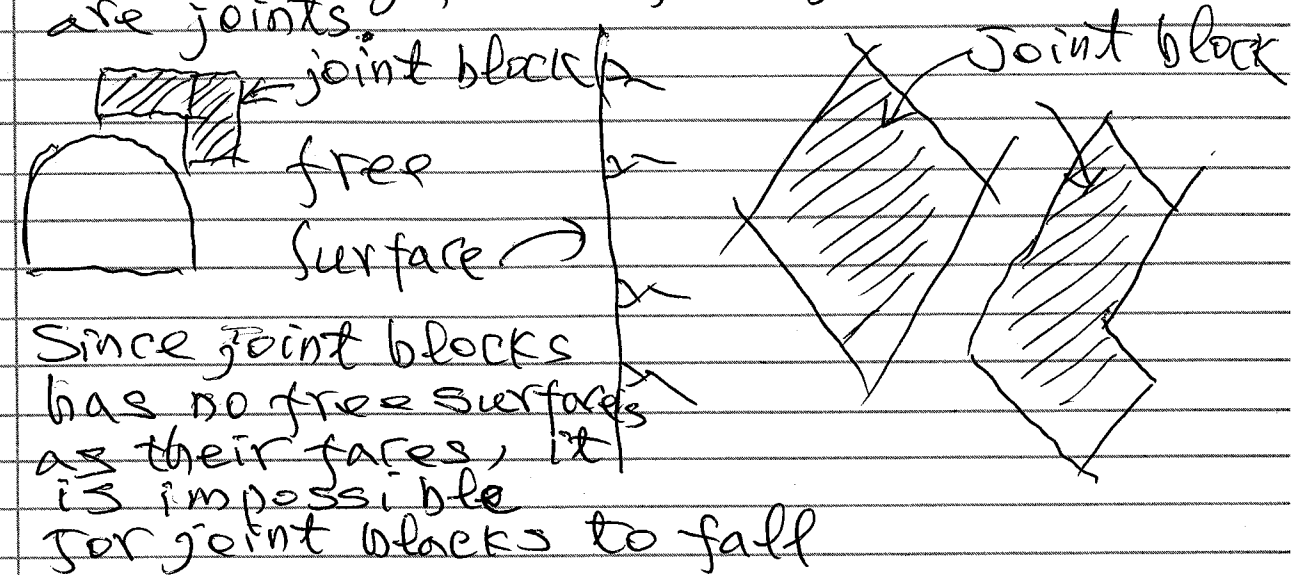 are joints.
joint block
joint block
free
surface
Since joint blocks
has no free surfaces
as their faces, it
is impossible
for joint blocks to fall